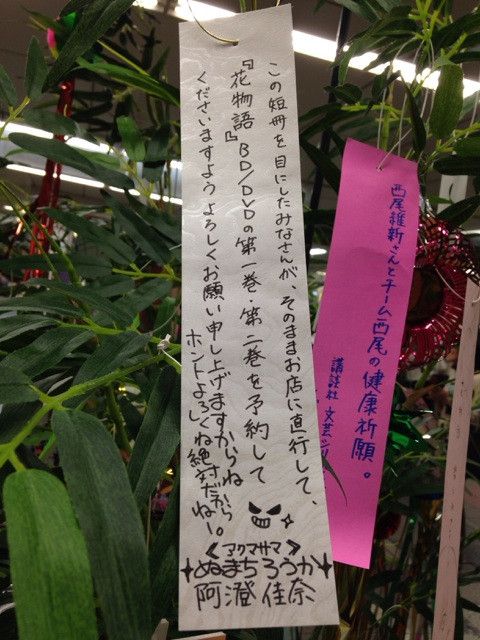 この短冊を目にしたみなさんが、そのままお店に直行して、
『花物語』BD/DVDの第一巻・第二巻を予約して
くださいますようよろしくお願い申し上げますからね
ホントよろしくね絶対だからねー。
<アクマサマ>
ぬまちろうか
阿澄佳奈
西尾維新さんとチーム西尾の健康祈願。
講談社 文芸シリ